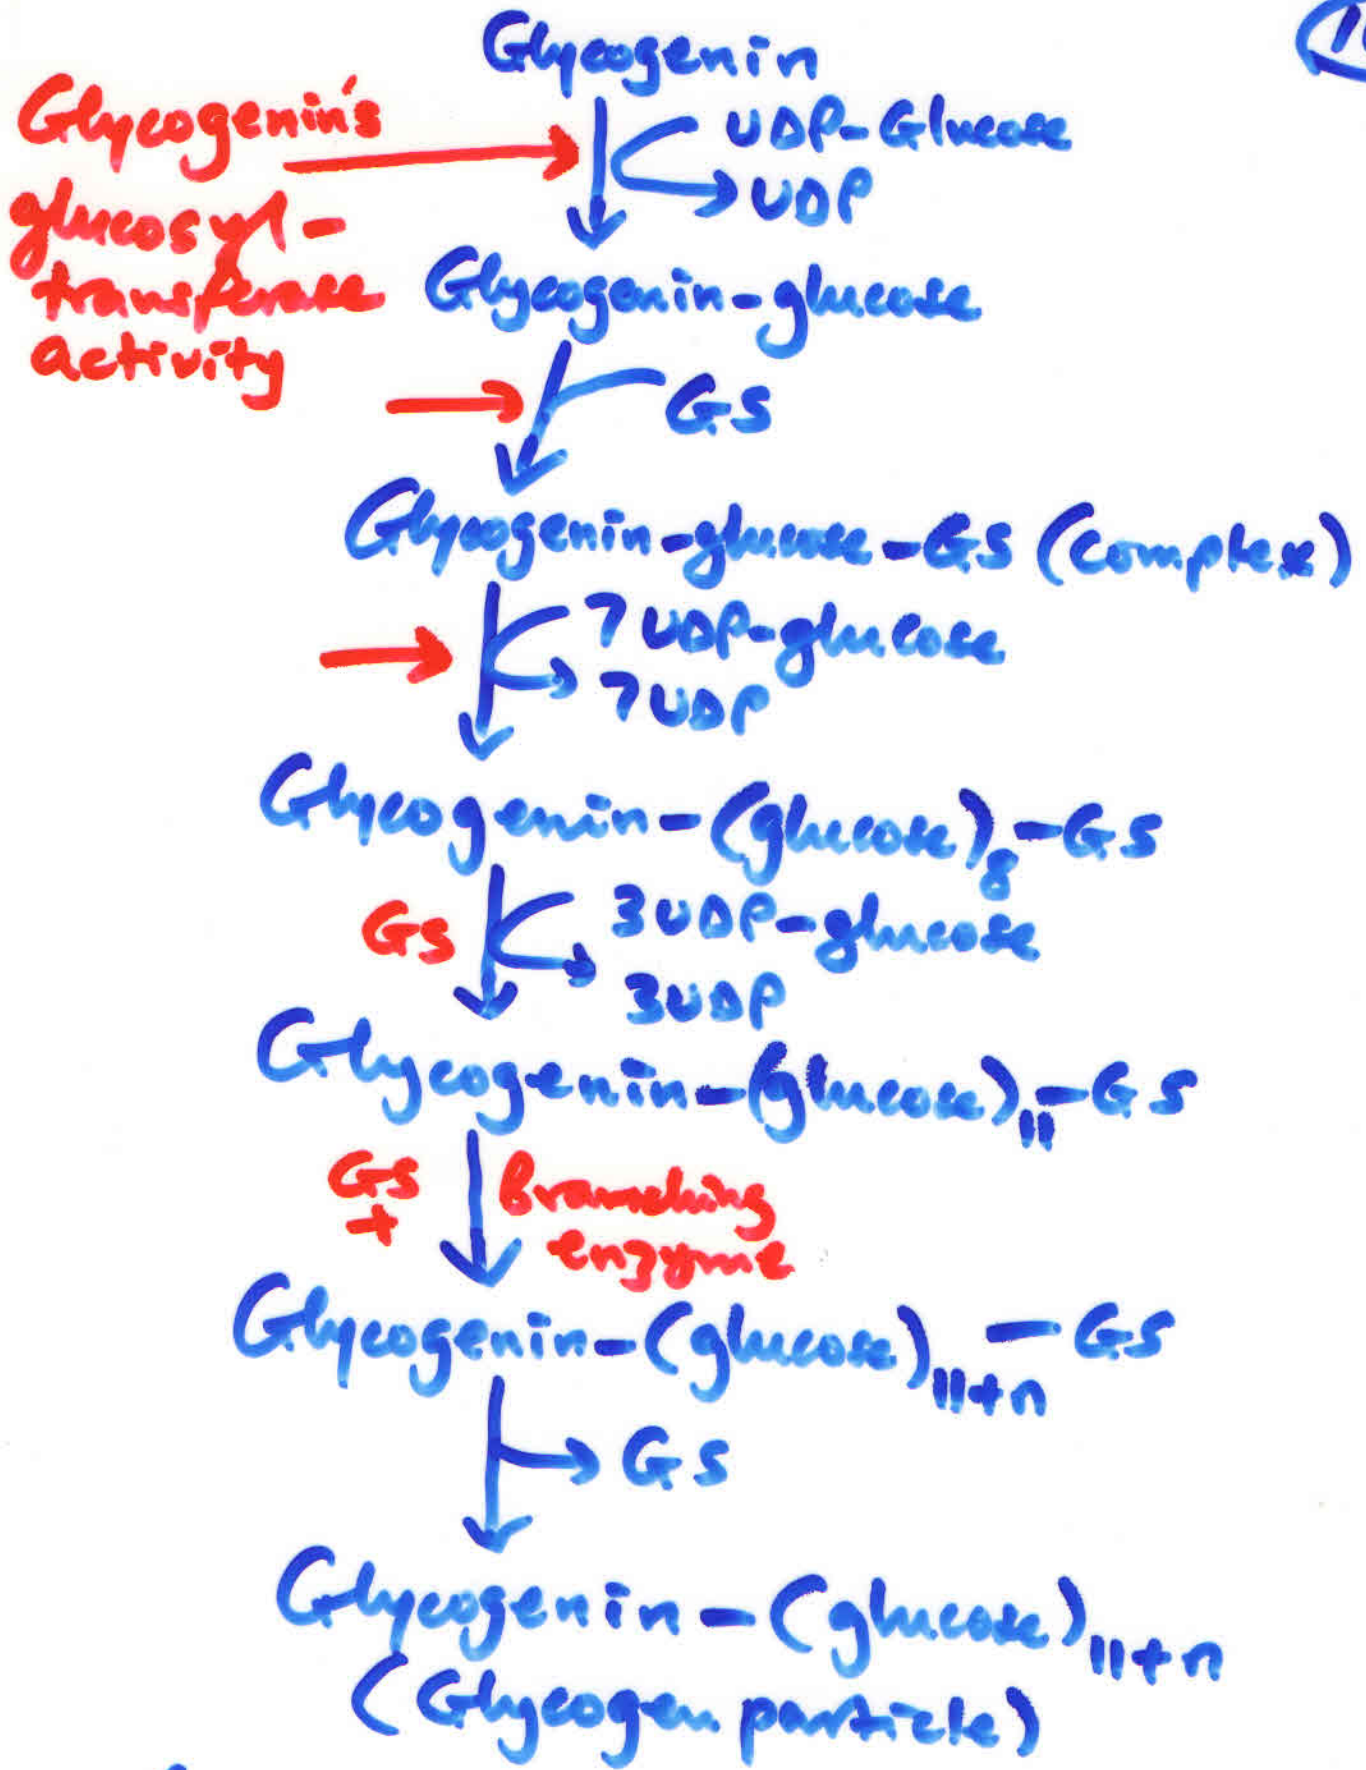 Glycogenin
Glycogenin's
glucosyl-
transferase
activity
UDP-Glucose
UDP
Glycogenin-glucose
GS
Glycogenin-glucose-GS (complex)
7 UDP-glucose
7 UDP
Glycogenin-(glucose)8-GS
GS
3 UDP-glucose
3 UDP
Glycogenin-(glucose)11-GS
GS
+
Branching
enzyme
Glycogenin-(glucose)11+n - GS
GS
Glycogenin-(glucose)11+n
(Glycogen particle)